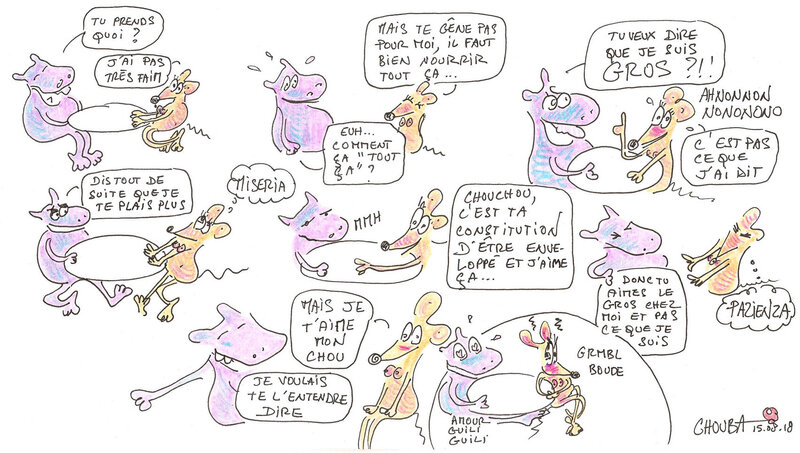 TU PRENDS
QUOI ?
J'AI PAS
TRÈS FAIM
MAIS TE GÊNE PAS
POUR MOI, IL FAUT
BIEN NOURRIR
TOUT ÇA...
EUH...
COMMENT
ÇA "TOUT
ÇA" ?
TU VEUX DIRE
QUE JE SUIS
GROS ?!!
AHNONNON
NONONONO
C'EST PAS
CE QUE
J'AI DIT
DIS TOUT DE
SUITE QUE JE
TE PLAIS PLUS
MISERIA
MMH
CHOUCHOU,
C'EST TA
CONSTITUTION
D'ÊTRE ENVE-
LOPPÉ ET J'AIME
ÇA...
DONC TU
AIMES LE
GROS CHEZ
MOI ET PAS
CE QUE JE
SUIS
PAZIENZA
MAIS JE
T'AIME
MON
CHOU
JE VOULAIS
TE L'ENTENDRE
DIRE
AMOUR
GUILI
GUILI
GRMBL
BOUDE
CHOUBA 15.08.18